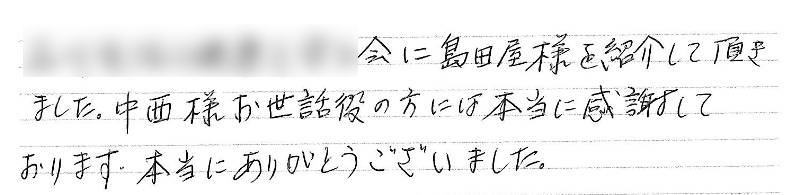 会に島田屋様を紹介して頂き
ました。中西様お世話役の方には本当に感謝して
おります。本当にありがとうございました。